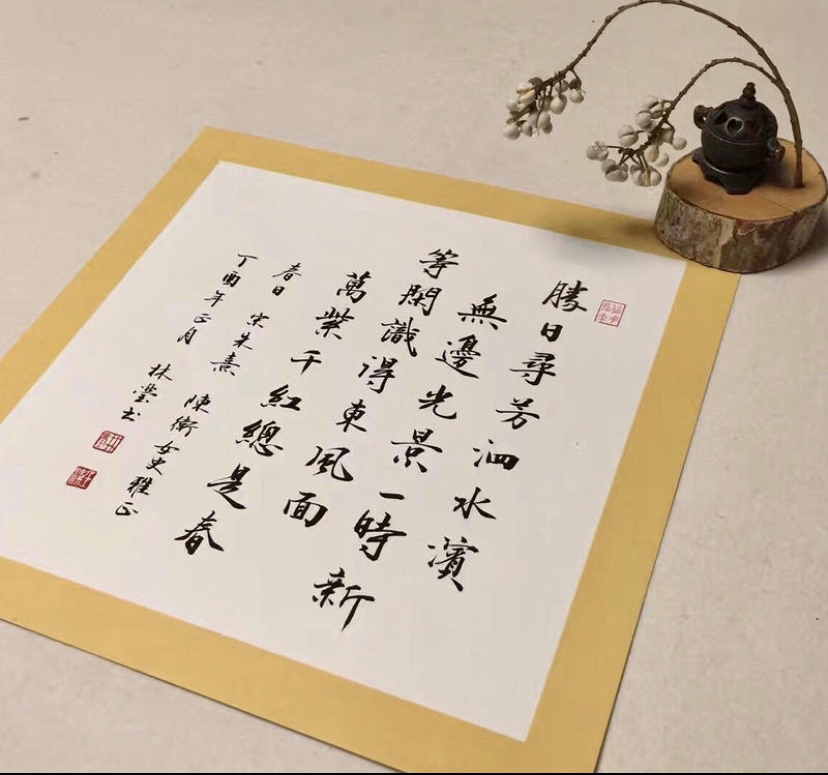 勝日尋芳泗水濱
無邊光景一時新
等閑識得東風面
萬紫千紅總是春
春日 宋朱熹 陳衛女史雅正
丁酉年正月 林瑩书